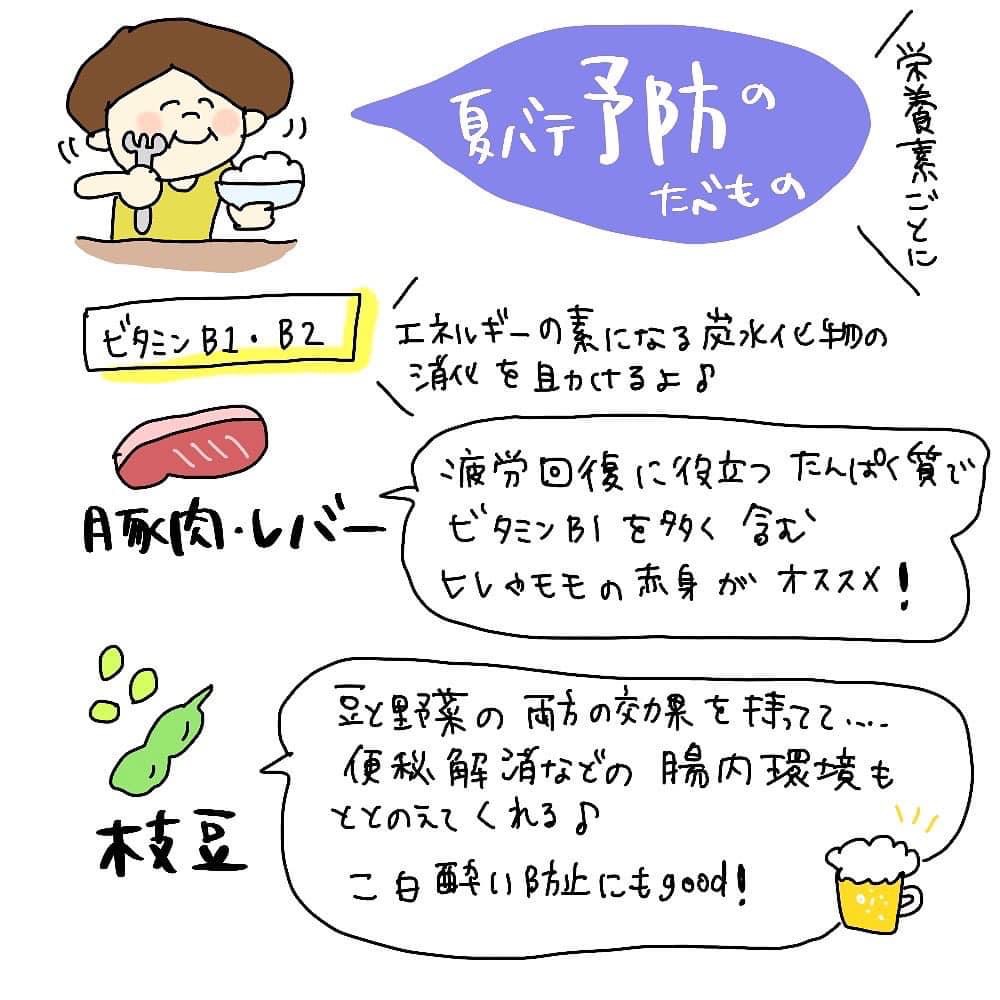 夏バテ予防の
たべもの
栄養素ごとに
ビタミンB1・B2
エネルギーの素になる炭水化物の
消化を助けるよ♪
豚肉・レバー
疲労回復に役立つたんぱく質で
ビタミンB1を多く含む
ヒレやモモの赤身がオススメ!
枝豆
豆と野菜の両方の効果を持ってて....
便秘解消などの腸内環境も
ととのえてくれる♪
二日酔い防止にもgood!